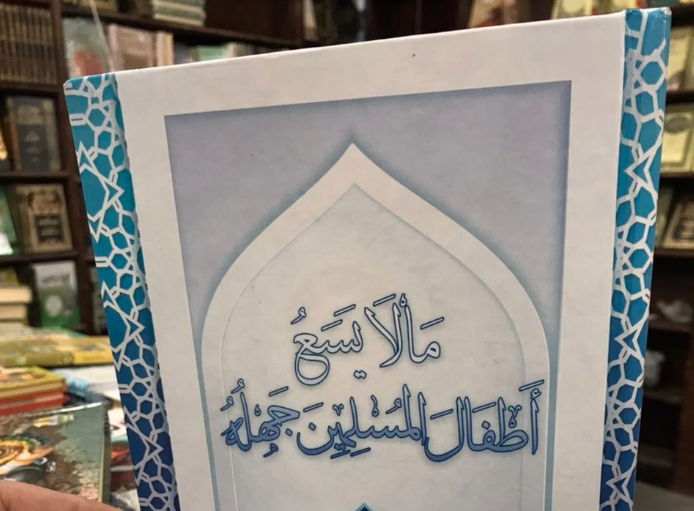 مَا لَا يَسَعُ
أَطْفَالَ المُسْلِمِينَ جَهْلُهُ